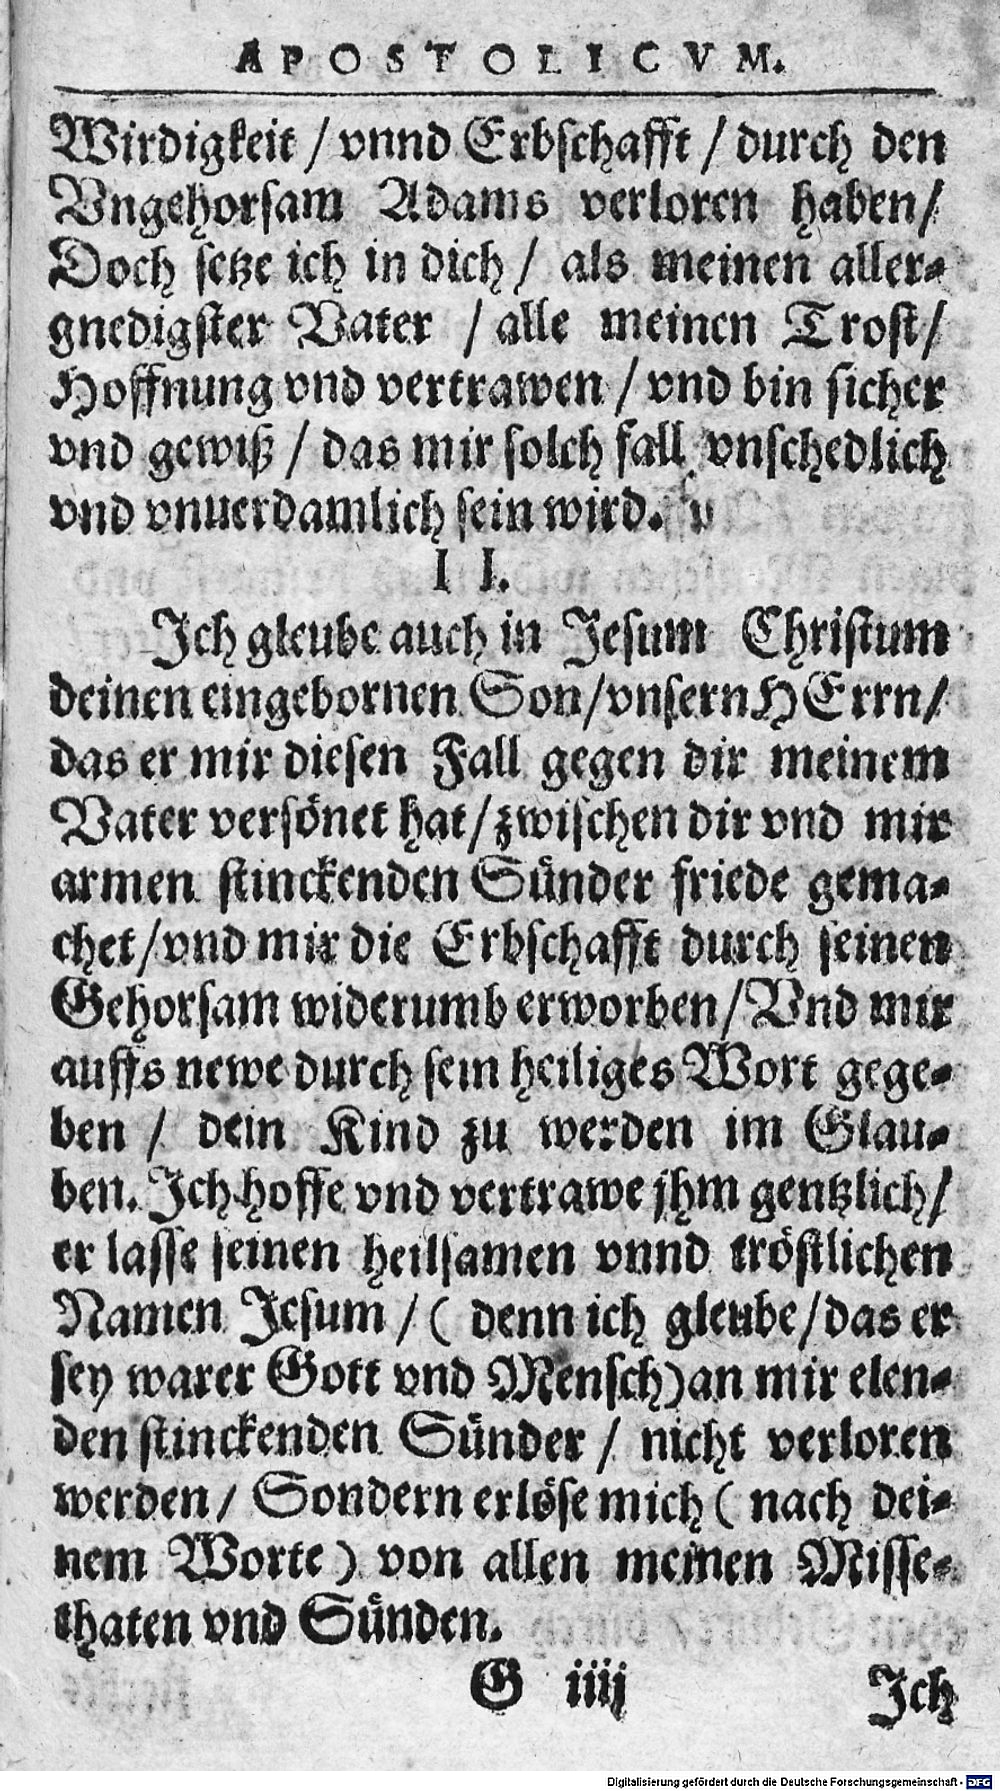 APOSTOLICVM.
Wirdigkeit / vnnd Erbschafft / durch den
Vngehorsam Adams verloren haben/
Doch setze ich in dich / als meinen aller-
gnedigster Vater / alle meinen Trost/
Hoffnung vnd vertrawen / vnd bin sicher
vnd gewiß / das mir solch fall vnschedlich
vnd vnuerdamlich sein wird.
II.
Ich gleube auch in Jesum Christum
deinen eingebornen Son/vnsern HErrn/
das er mir diesen Fall gegen dir meinem
Vater versönet hat/zwischen dir vnd mir
armen stinckenden Sünder friede gema-
chet/vnd mir die Erbschafft durch seinen
Gehorsam widerumb erworben/Vnd mir
auffs newe durch sein heiliges Wort gege-
ben / dein Kind zu werden im Glau-
ben. Ich hoffe vnd vertrawe jhm gentzlich/
er lasse seinen heilsamen vnnd tröstlichen
Namen Jesum / ( denn ich gleube/das er
sey warer Gott vnd Mensch) an mir elen-
den stinckenden Sünder / nicht verloren
werden/ Sondern erlöse mich ( nach dei-
nem Worte ) von allen meinen Misse-
thaten vnd Sünden.
G iiij Ich
Digitalisierung gefördert durch die Deutsche Forschungsgemeinschaft - DFG